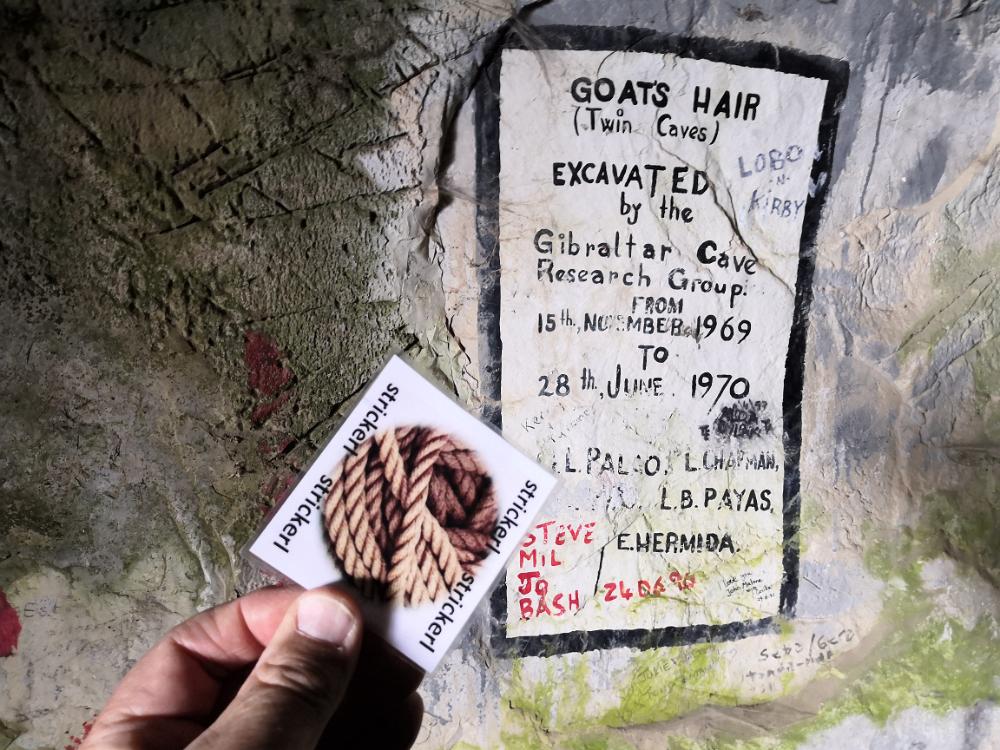 GOAT'S HAIR
(Twin Caves)
LOBO
N
KIRBY
EXCAVATED
by the
Gibraltar Cave
Research Group.
FROM
15th, NOVEMBER 1969
TO
28th, JUNE 1970
L. PALCO, L. CHAPMAN,
L.B. PAYAS,
E. HERMIDA.
STEVE
MIL
JO
BASH
strickerl
strickerl
strickerl
strickerl